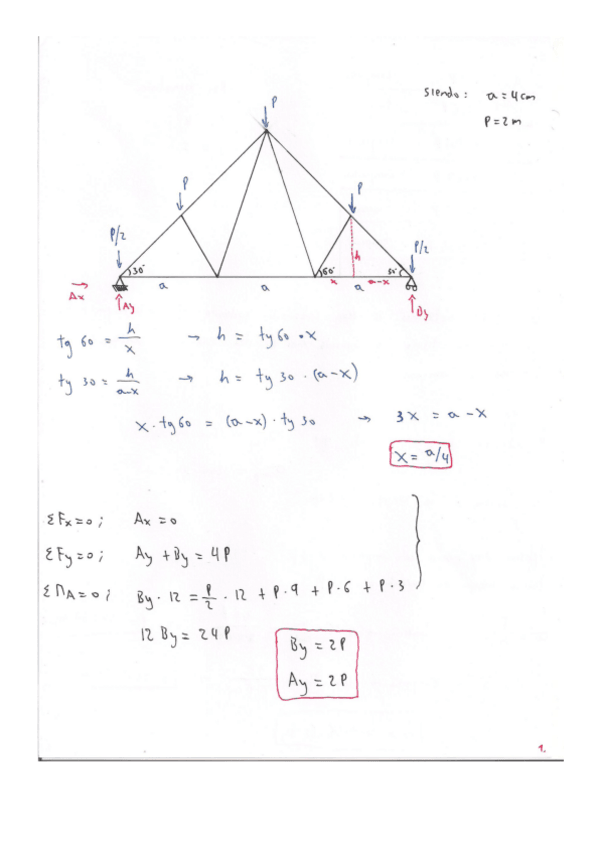 Siendo: a = 4 cm
P = 2 m
P
P
P
P/2
P/2
30°
60°
30°
h
a
a
x
a
a-x
Ax
Ay
By
tg 60 = h/x → h = tg 60 · x
tg 30 = h/a-x → h = tg 30 · (a-x)
x · tg 60 = (a-x) · tg 30 → 3x = a - x
x = a/4
ΣFx = 0; Ax = 0
ΣFy = 0; Ay + By = 4P
ΣMA = 0; By · 12 = P/2 · 12 + P · 9 + P · 6 + P · 3
12 By = 24P
By = 2P
Ay = 2P
1.